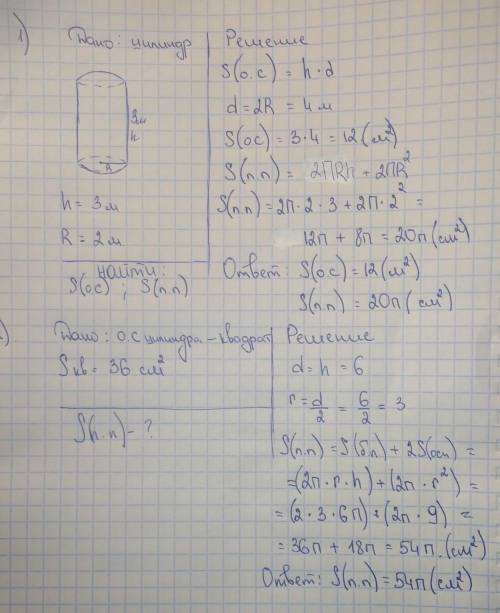 1) Дано: цилиндр
3м
h
R
h = 3м
R = 2м
найти:
S(o.c) ; S(п.п)
Решение
S(o.c) = h · d
d = 2R = 4м
S(oc) = 3·4 = 12(м²)
S(п.п) = 2ПRh + 2ПR²
S(п.п) = 2п·2·3 + 2п·2² =
12п + 8п = 20п(см²)
Ответ: S(o.c) = 12(м²)
S(п.п) = 20п(см²)
) Дано: о.с цилиндра – квадрат
Sкв = 36 см²
S(п.п) – ?
Решение
d = h = 6
r = d/2 = 6/2 = 3
S(п.п) = S(бп) + 2S(осн) =
= (2п · r · h) + (2п · r²) =
= (2 · 3 · 6п) + (2п · 9) =
= 36п + 18п = 54п.(см²)
Ответ: S(п.п) = 54п(см²)